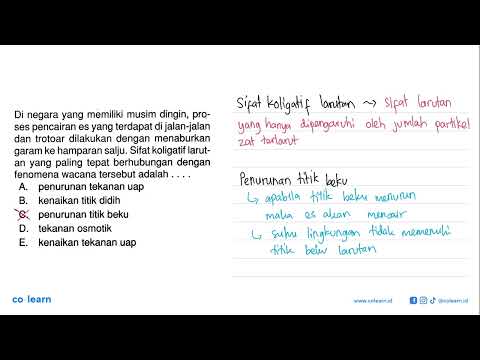 Di negara yang memiliki musim dingin, pro-
ses pencairan es yang terdapat di jalan-jalan
dan trotoar dilakukan dengan menaburkan
garam ke hamparan salju. Sifat koligatif larut-
an yang paling tepat berhubungan dengan
fenomena wacana tersebut adalah . . . .
A. penurunan tekanan uap
B. kenaikan titik didih
C. penurunan titik beku
D. tekanan osmotik
E. kenaikan tekanan uap
Sifat koligatif larutan → Sifat larutan
yang hanya dipengaruhi oleh jumlah partikel
zat terlarut
Penurunan titik beku
↳ apabila titik beku menurun
maka es akan mencair
↳ suhu lingkungan tidak memenuhi
titik beku larutan
co learn
www.colearn.id
@colearn.id